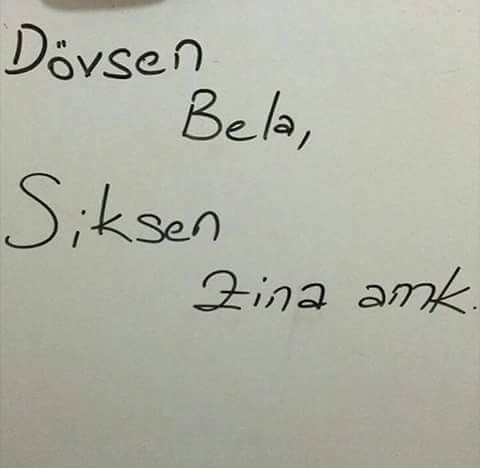 Dövsen
Bela,
Siksen
Zina amk.